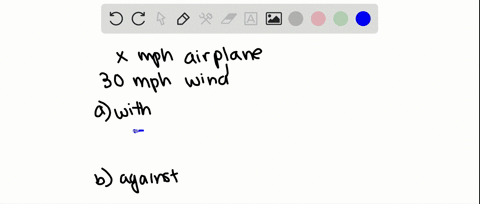 x mph airplane
30 mph wind
a) with
b) against